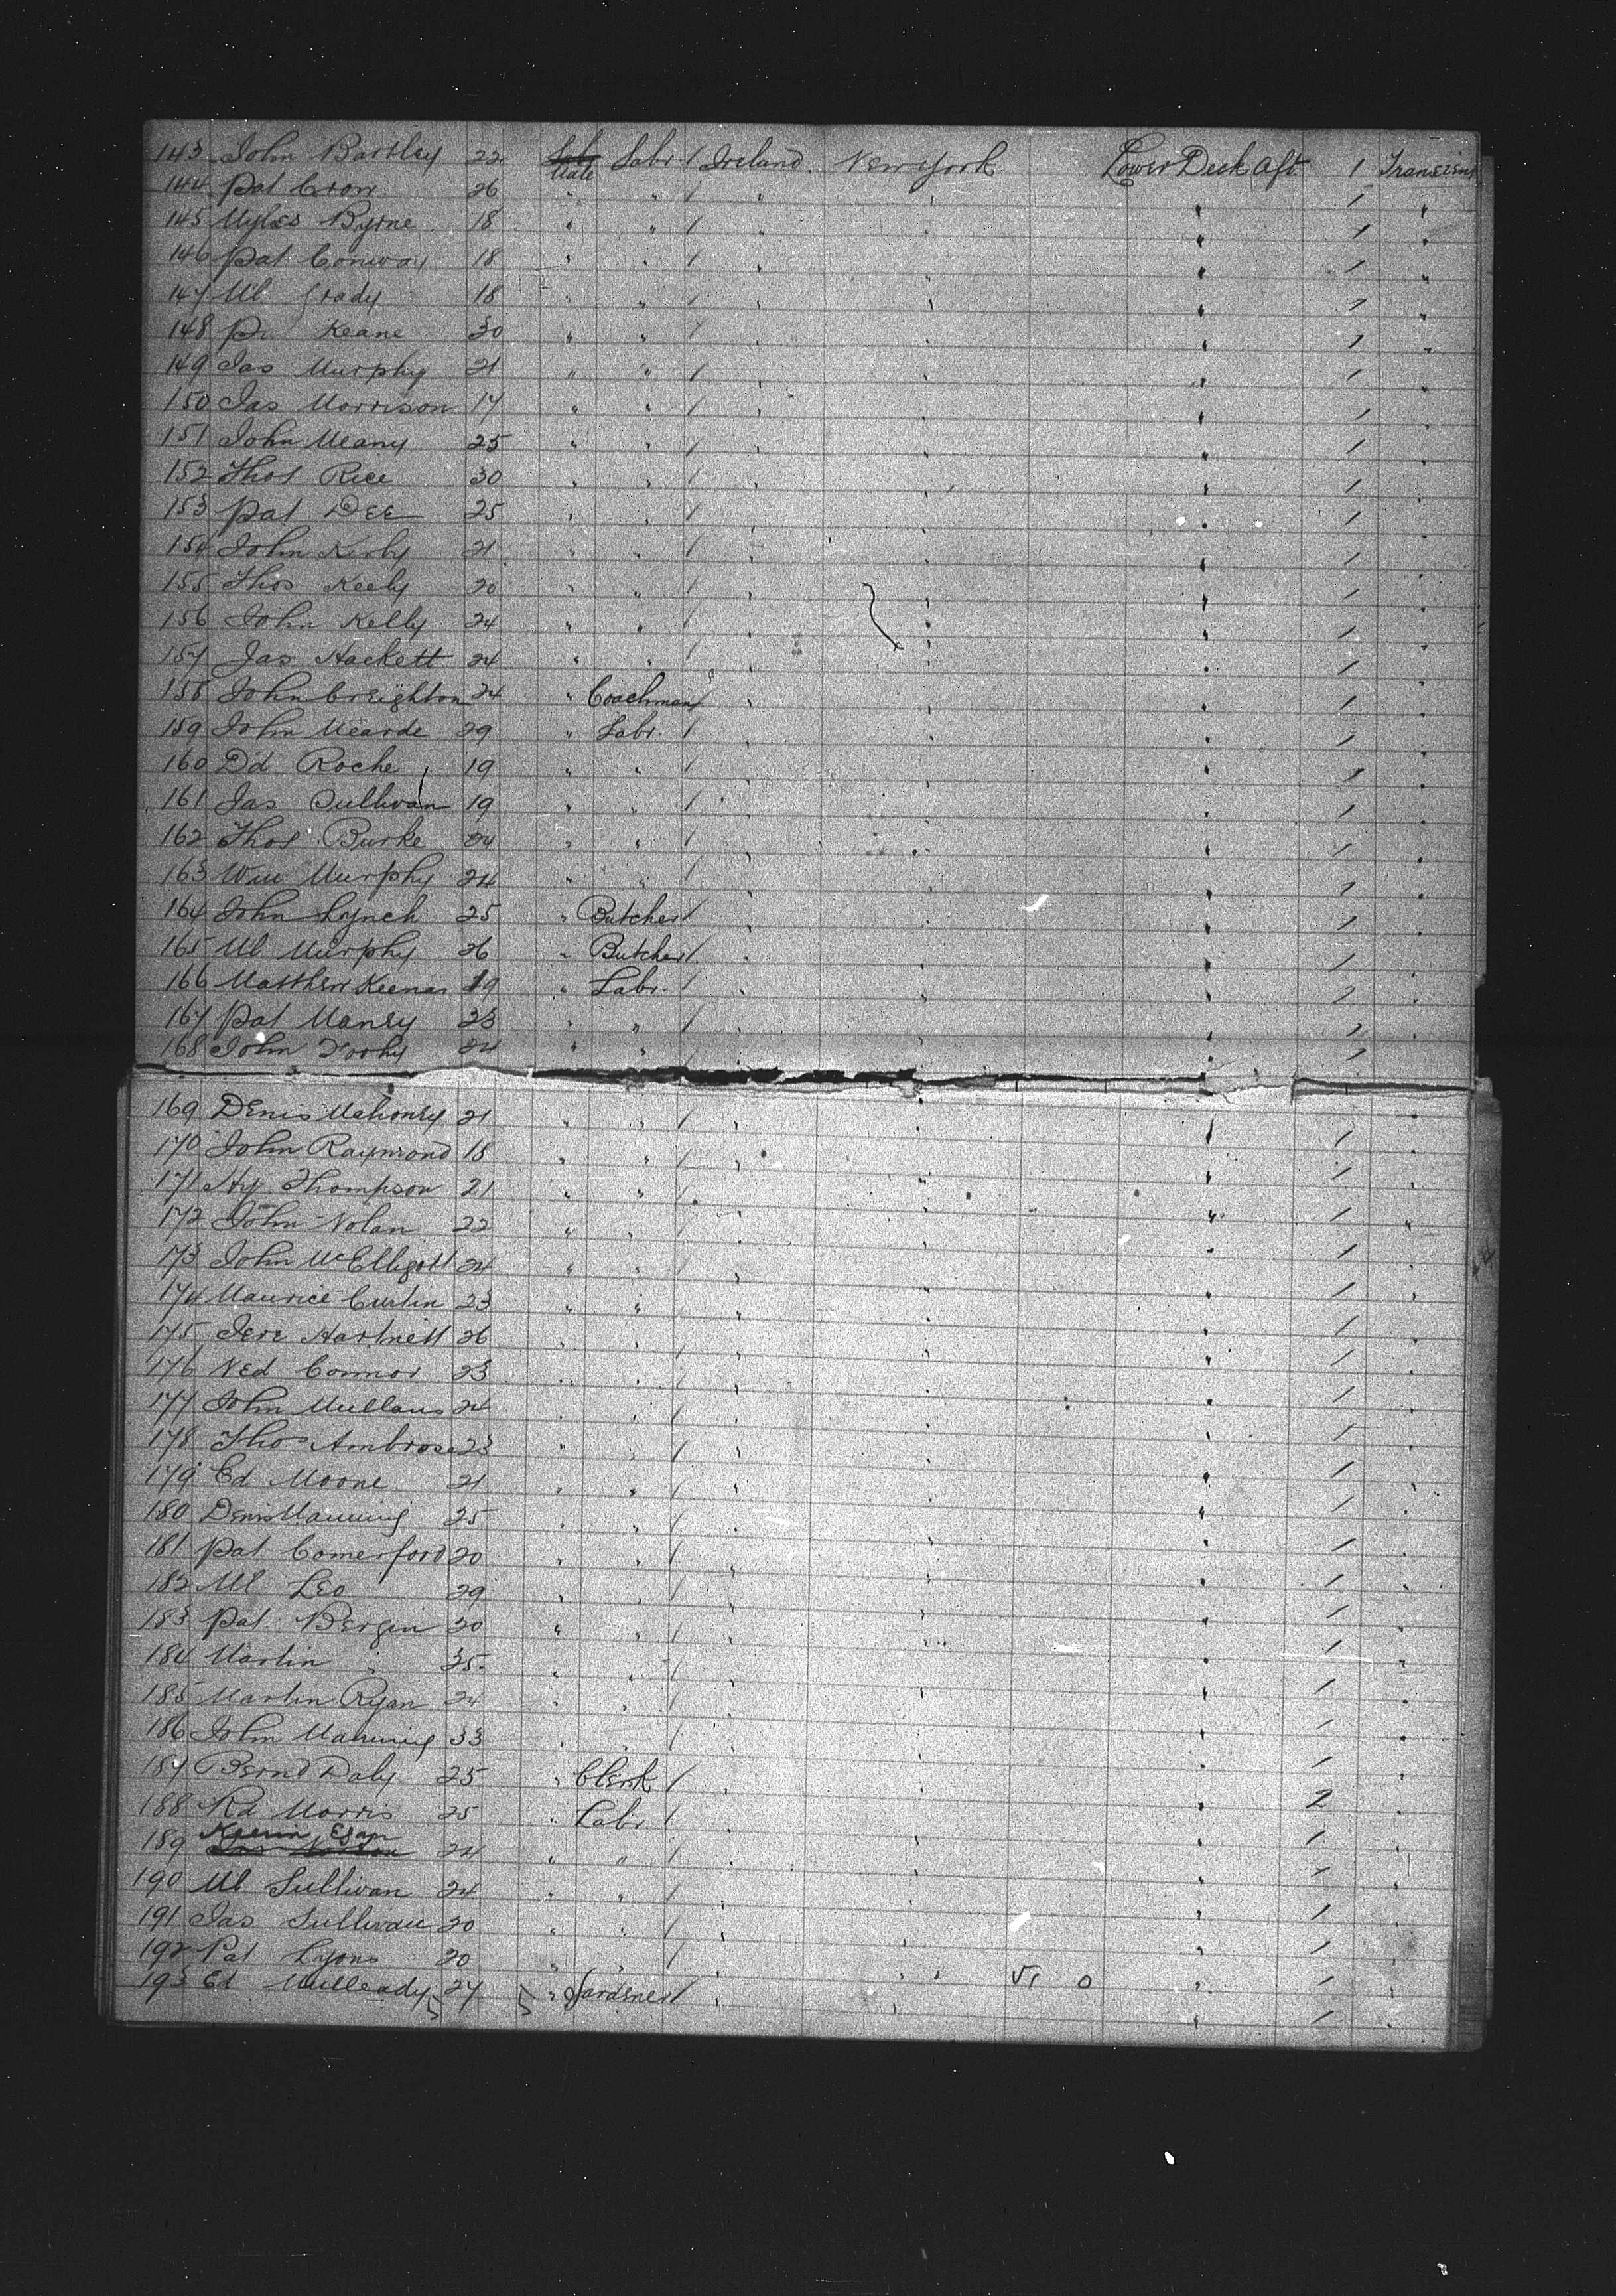 143 John Bartley 22 Male Labr / Ireland New York Lower Deck Aft 1 Transient
144 Pat Crow 26 " " / " " " 1 "
145 Myles Byrne 18 " " / " " " 1 "
146 Pat Conway 18 " " / " " " 1 "
147 Ml Grady 18 " " / " " " 1 "
148 Keane 30 " " / " " " 1 "
149 Jas Murphy 21 " " / " " " 1 "
150 Jas Morrison 17 " " / " " " 1 "
151 John Meany 25 " " / " " " 1 "
152 Thos Rice 30 " " / " " " 1 "
153 Pat Dee 25 " " / " " " 1 "
154 John Kirby 21 " " / " " " 1 "
155 Thos Keely 20 " " / " " " 1 "
156 John Kelly 24 " " / " " " 1 "
157 Jas Hackett 24 " " / " " " 1 "
158 John Creighton 24 " Coachman / " " " 1 "
159 John Mearde 29 " Labr. / " " " 1 "
160 Dd Roche 19 " " / " " " 1 "
161 Jas Sullivan 19 " " / " " " 1 "
162 Thos Burke 24 " " / " " " 1 "
163 Wm Murphy 24 " " / " " " 1 "
164 John Lynch 25 " Butcher / " " " 1 "
165 Ml Murphy 26 " Butcher / " " " 1 "
166 Matthew Keenan 19 " Labr. / " " " "
167 Pat Maney 23 " " / " " " 1 "
168 John 24 " " / " " " 1 "
169 Denis Mahoney 21 " " / " " " 1 "
170 John Raymond 18 " " / " " " 1 "
171 Hy Thompson 21 " " / " " " 1 "
172 John Nolan 22 " " / " " " 1 "
173 John McElligott 24 " " / " " " 1 "
174 Maurice Curtin 23 " " / " " " 1 "
175 Jere Hartnett 26 " " / " " " 1 "
176 Ned Connor 23 " " / " " " 1 "
177 John Mullans 24 " " / " " " 1 "
178 Thos Ambrose 23 " " / " " " 1 "
179 Ed Moone 21 " " / " " " 1 "
180 Denis Manning 25 " " / " " " 1 "
181 Pat Comerford 20 " " / " " " 1 "
182 Ml Leo 29 " " / " " " 1 "
183 Pat Bergin 20 " " / " " " 1 "
184 Martin " 35 " " / " " " 1 "
185 Martin Ryan 24 " " / " " " 1 "
186 John Manning 33 " " / " " " 1 "
187 Bernd Daly 25 " Clerk / " " " 2 "
188 Rd Morris 25 " Labr. / " " " 1 "
189 Egan 24 " " / " " " 1 "
190 Ml Sullivan 24 " " / " " " 1 "
191 Jas Sullivan 20 " " / " " " 1 "
192 Pat Lyons 20 " " / " " " 1 "
193 Ed Mulleady 27 " Gardener / " " " 1 "